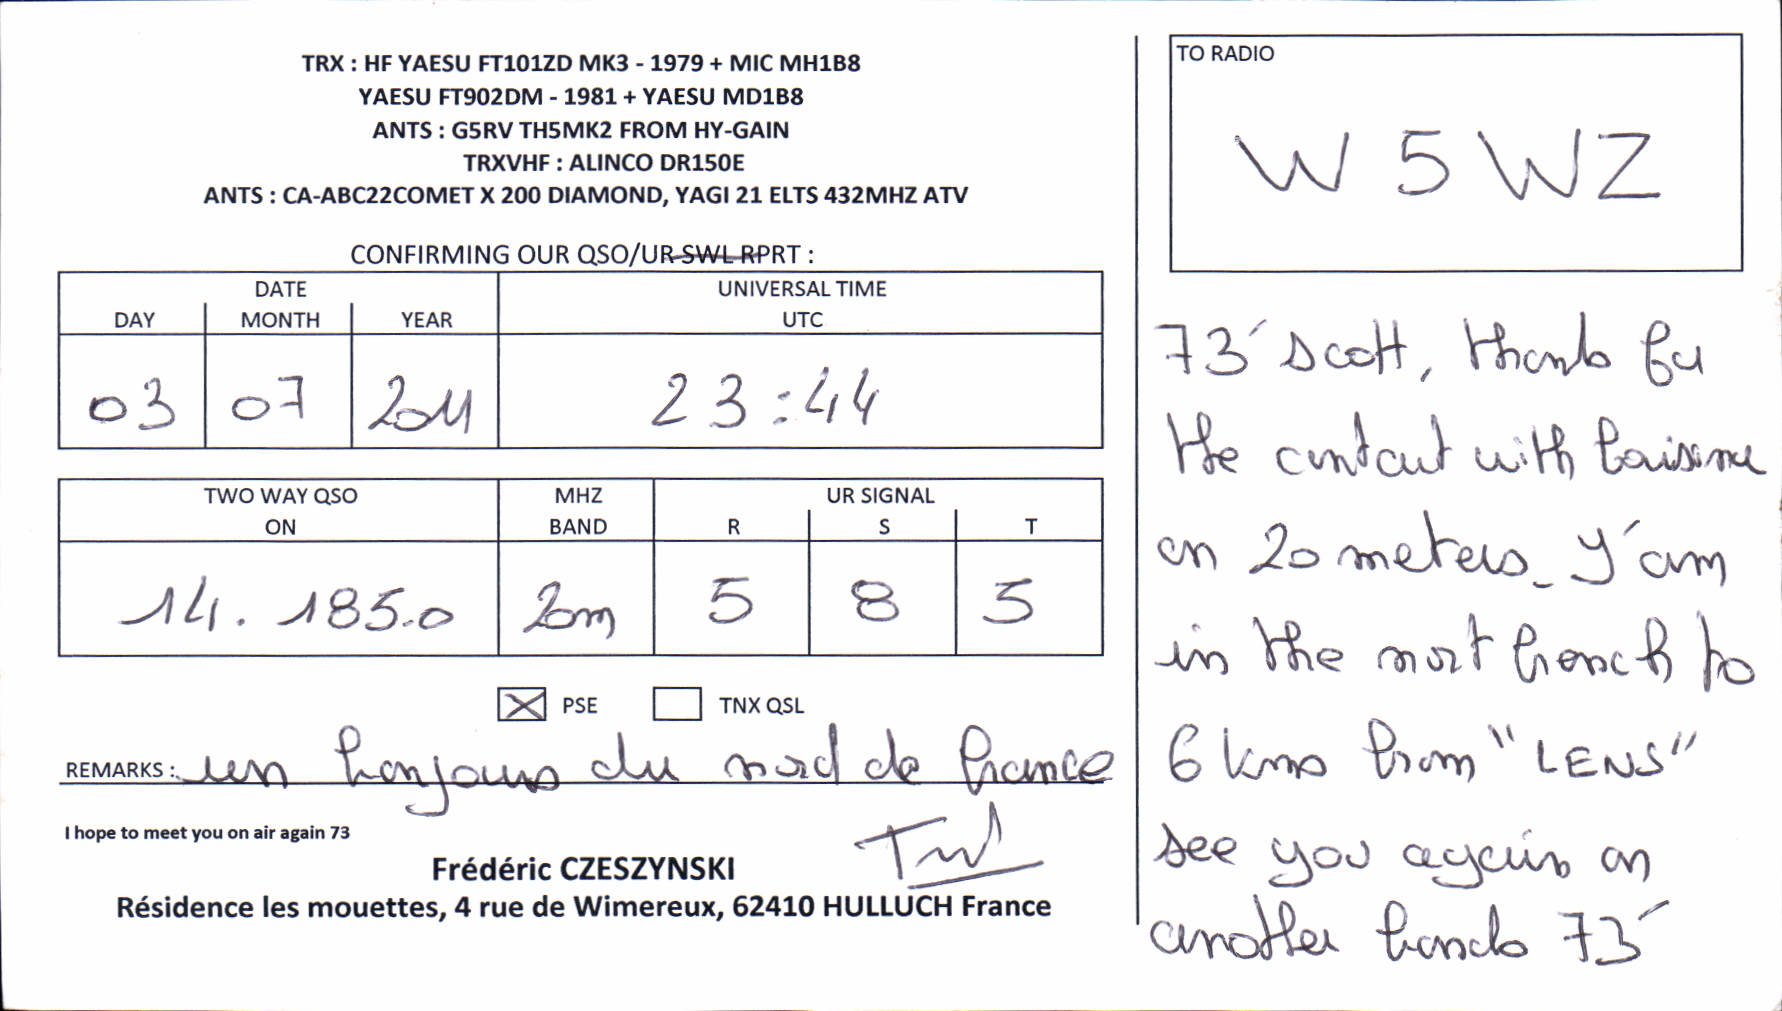 TRX : HF YAESU FT101ZD MK3 - 1979 + MIC MH1B8
YAESU FT902DM - 1981 + YAESU MD1B8
ANTS : G5RV TH5MK2 FROM HY-GAIN
TRXVHF : ALINCO DR150E
ANTS : CA-ABC22COMET X 200 DIAMOND, YAGI 21 ELTS 432MHZ ATV
CONFIRMING OUR QSO/UR SWL RPRT :
DATE
UNIVERSAL TIME
DAY MONTH YEAR
UTC
03 07 2011 23:44
TWO WAY QSO
ON
MHZ
BAND
UR SIGNAL
R S T
14.185.0 20m 5 8 5
PSE TNX QSL
REMARKS : un bonjour du nord de france
I hope to meet you on air again 73
Frédéric CZESZYNSKI
Résidence les mouettes, 4 rue de Wimereux, 62410 HULLUCH France
TO RADIO
W5WZ
73' Scott, thanks for
the contact with
on 20 meters. Y'am
in the nort french to
6 kms from "LENS"
see you again on
another bands 73'